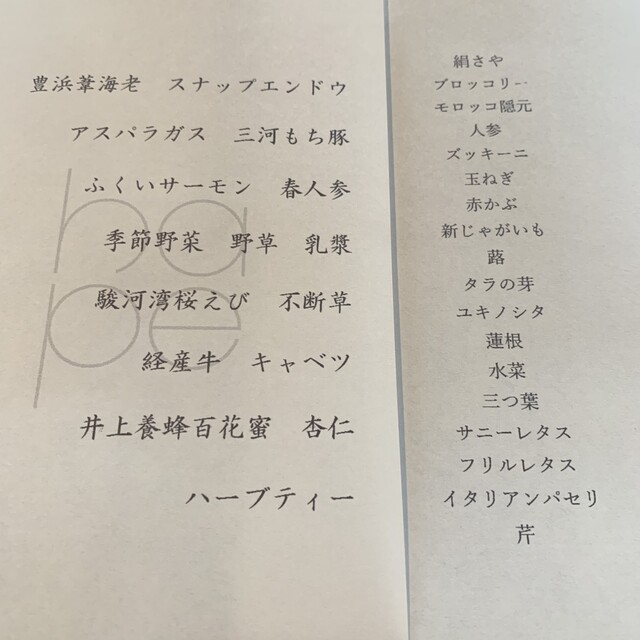 豊浜葦海老　スナップエンドウ
アスパラガス　三河もち豚
ふくいサーモン　春人参
季節野菜　野草　乳漿
駿河湾桜えび　不断草
経産牛　キャベツ
井上養蜂百花蜜　杏仁
ハーブティー
ha
pe
絹さや
ブロッコリー
モロッコ隠元
人参
ズッキーニ
玉ねぎ
赤かぶ
新じゃがいも
蕗
タラの芽
ユキノシタ
蓮根
水菜
三つ葉
サニーレタス
フリルレタス
イタリアンパセリ
芹